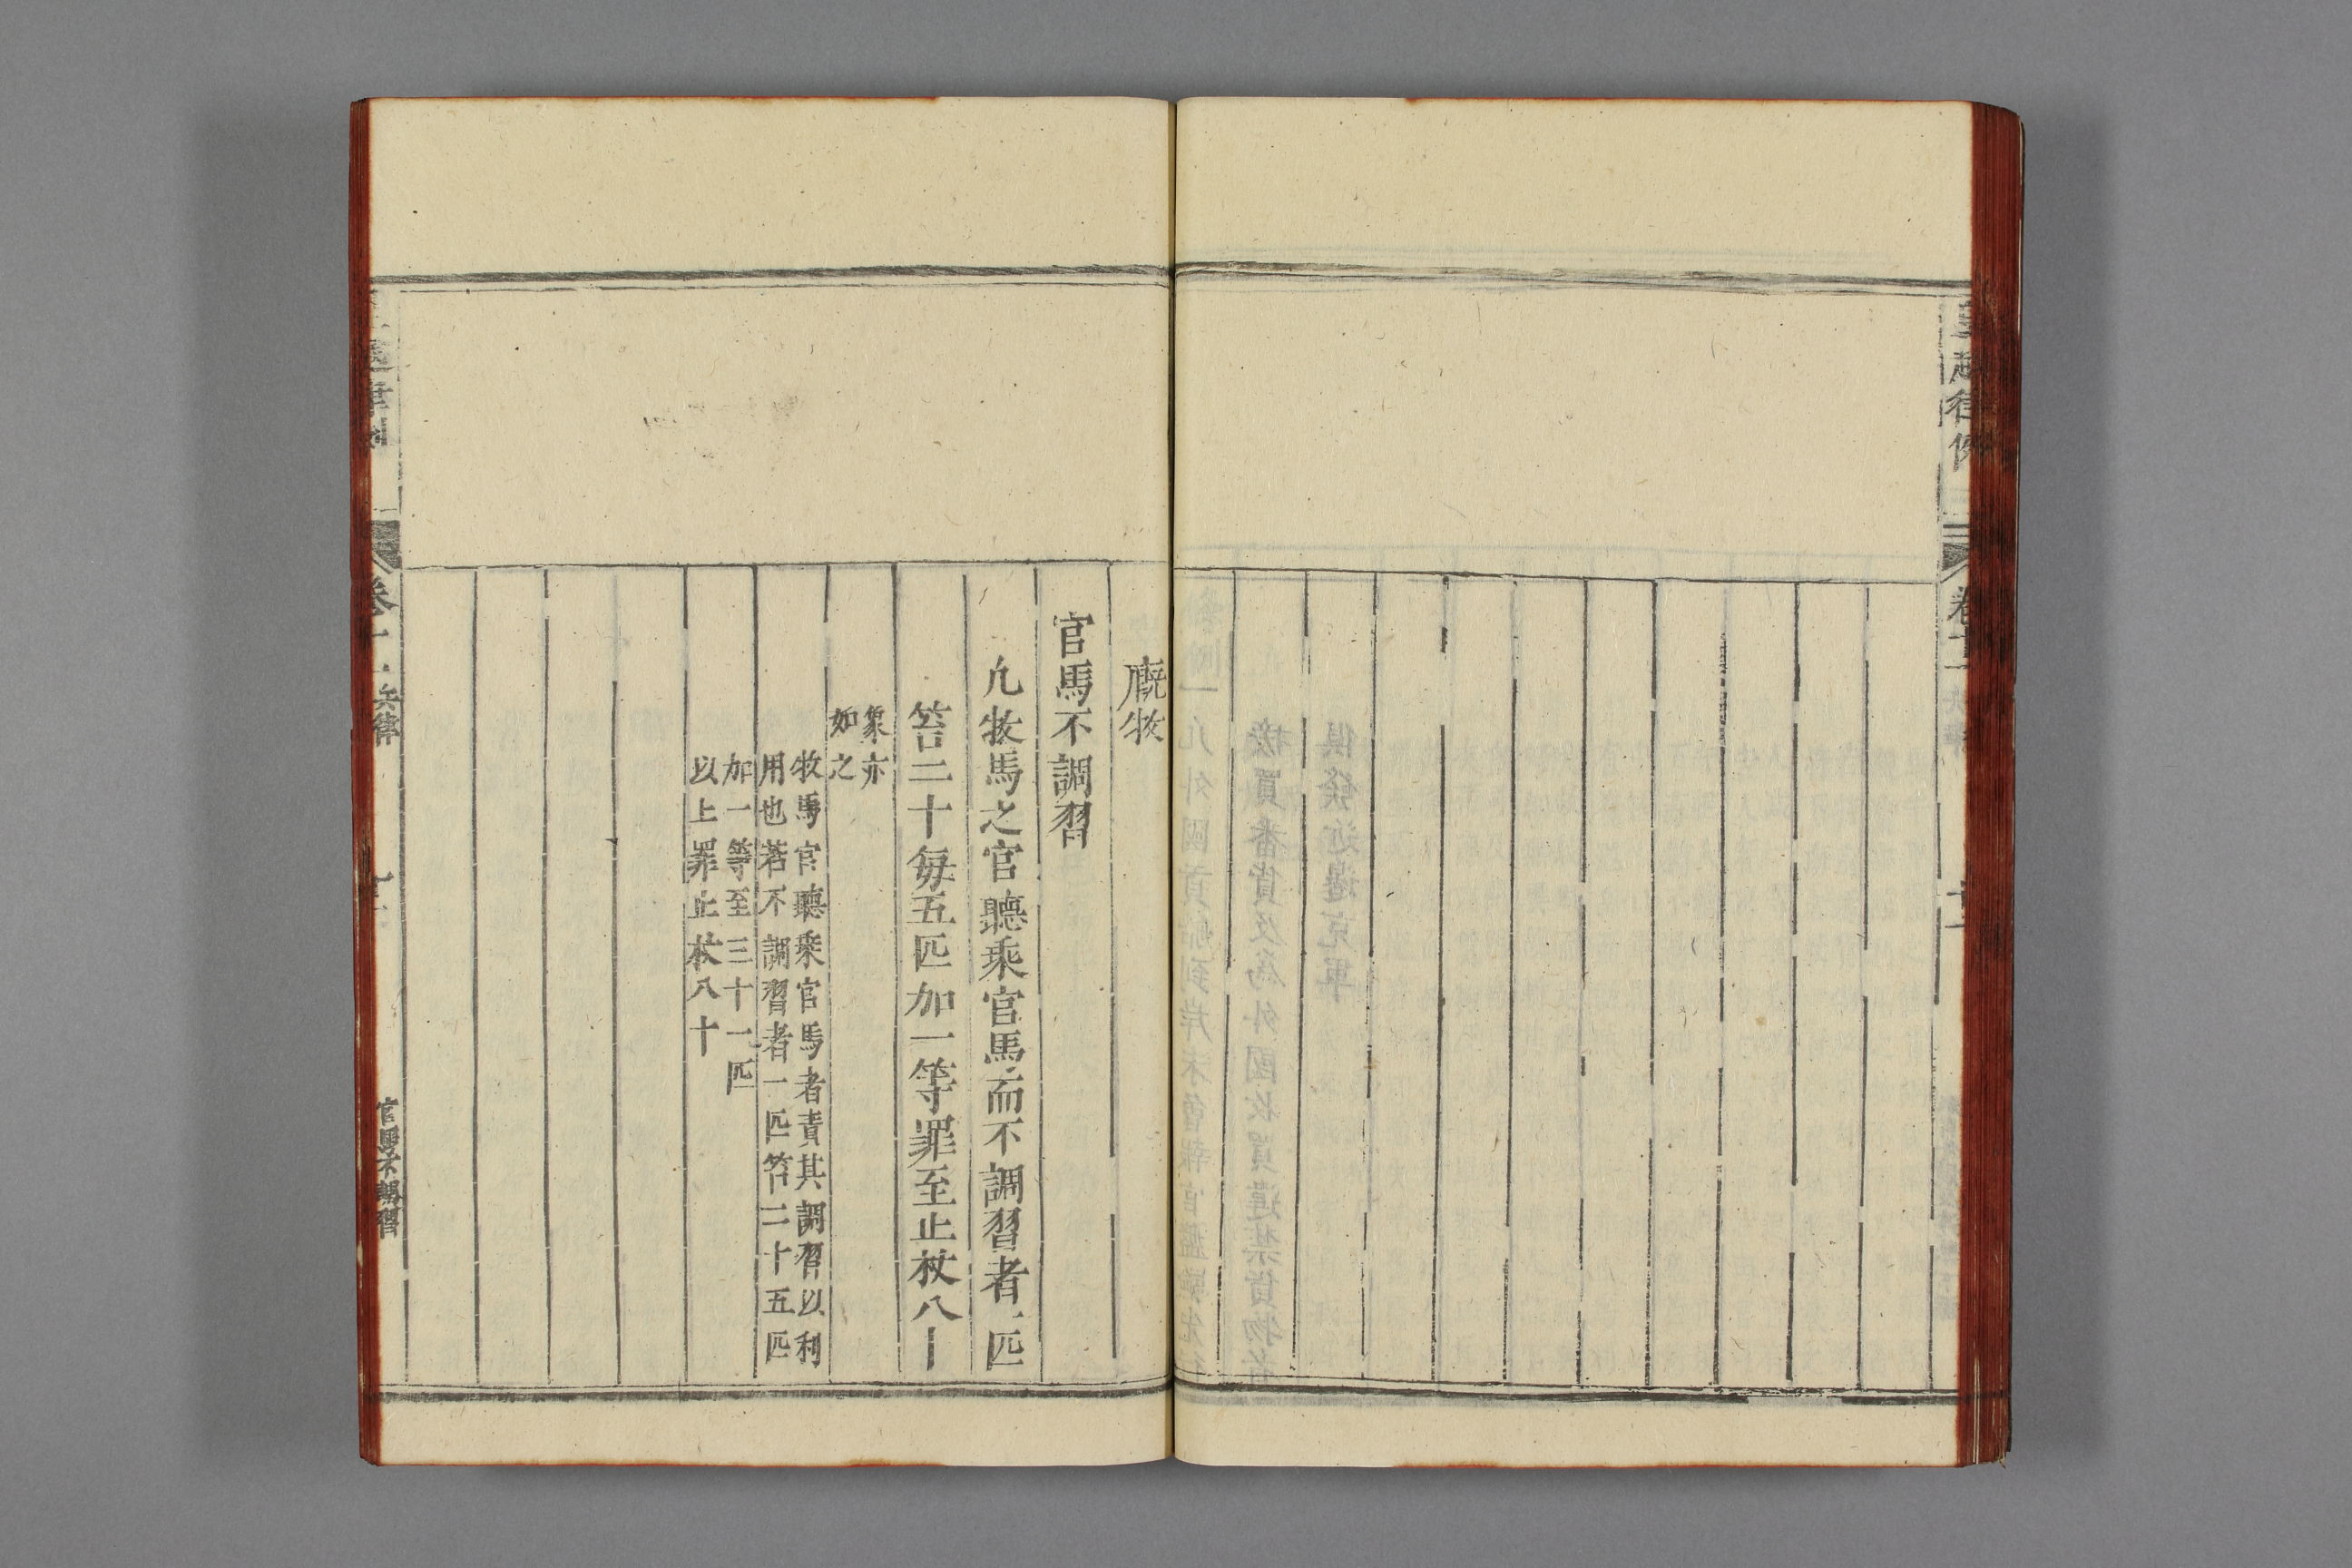 皇越律例
卷十一
廐牧
官馬不調習
凢牧馬之官聽乘官馬而不調習者一匹
笞二十每五匹加一等罪至止杖八十
象亦
如之
牧馬官聽乘官馬者責其調習以利
用也若不調習者一匹笞二十五匹
加一等至三十一匹
以上罪止杖八十
兵律
官馬不調習